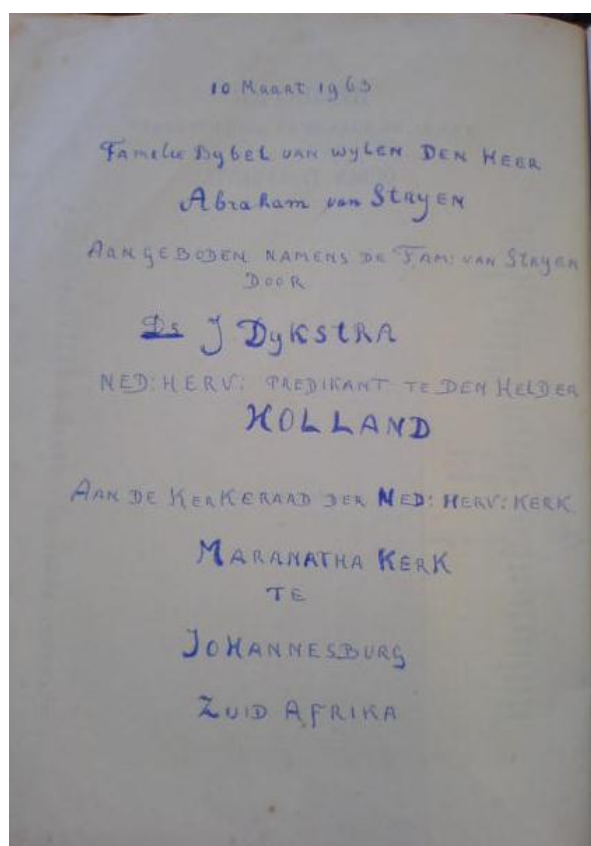 10 Maart 1963
Familie Bybel van wylen Den Heer
Abraham van Stryen
Aangeboden namens de Fam: van Stryen
door
Ds J Dykstra
Ned: Herv: Predikant te Den Helder
HOLLAND
Aan de Kerkeraad der Ned: Herv: Kerk
Maranatha Kerk
te
Johannesburg
Zuid Afrika